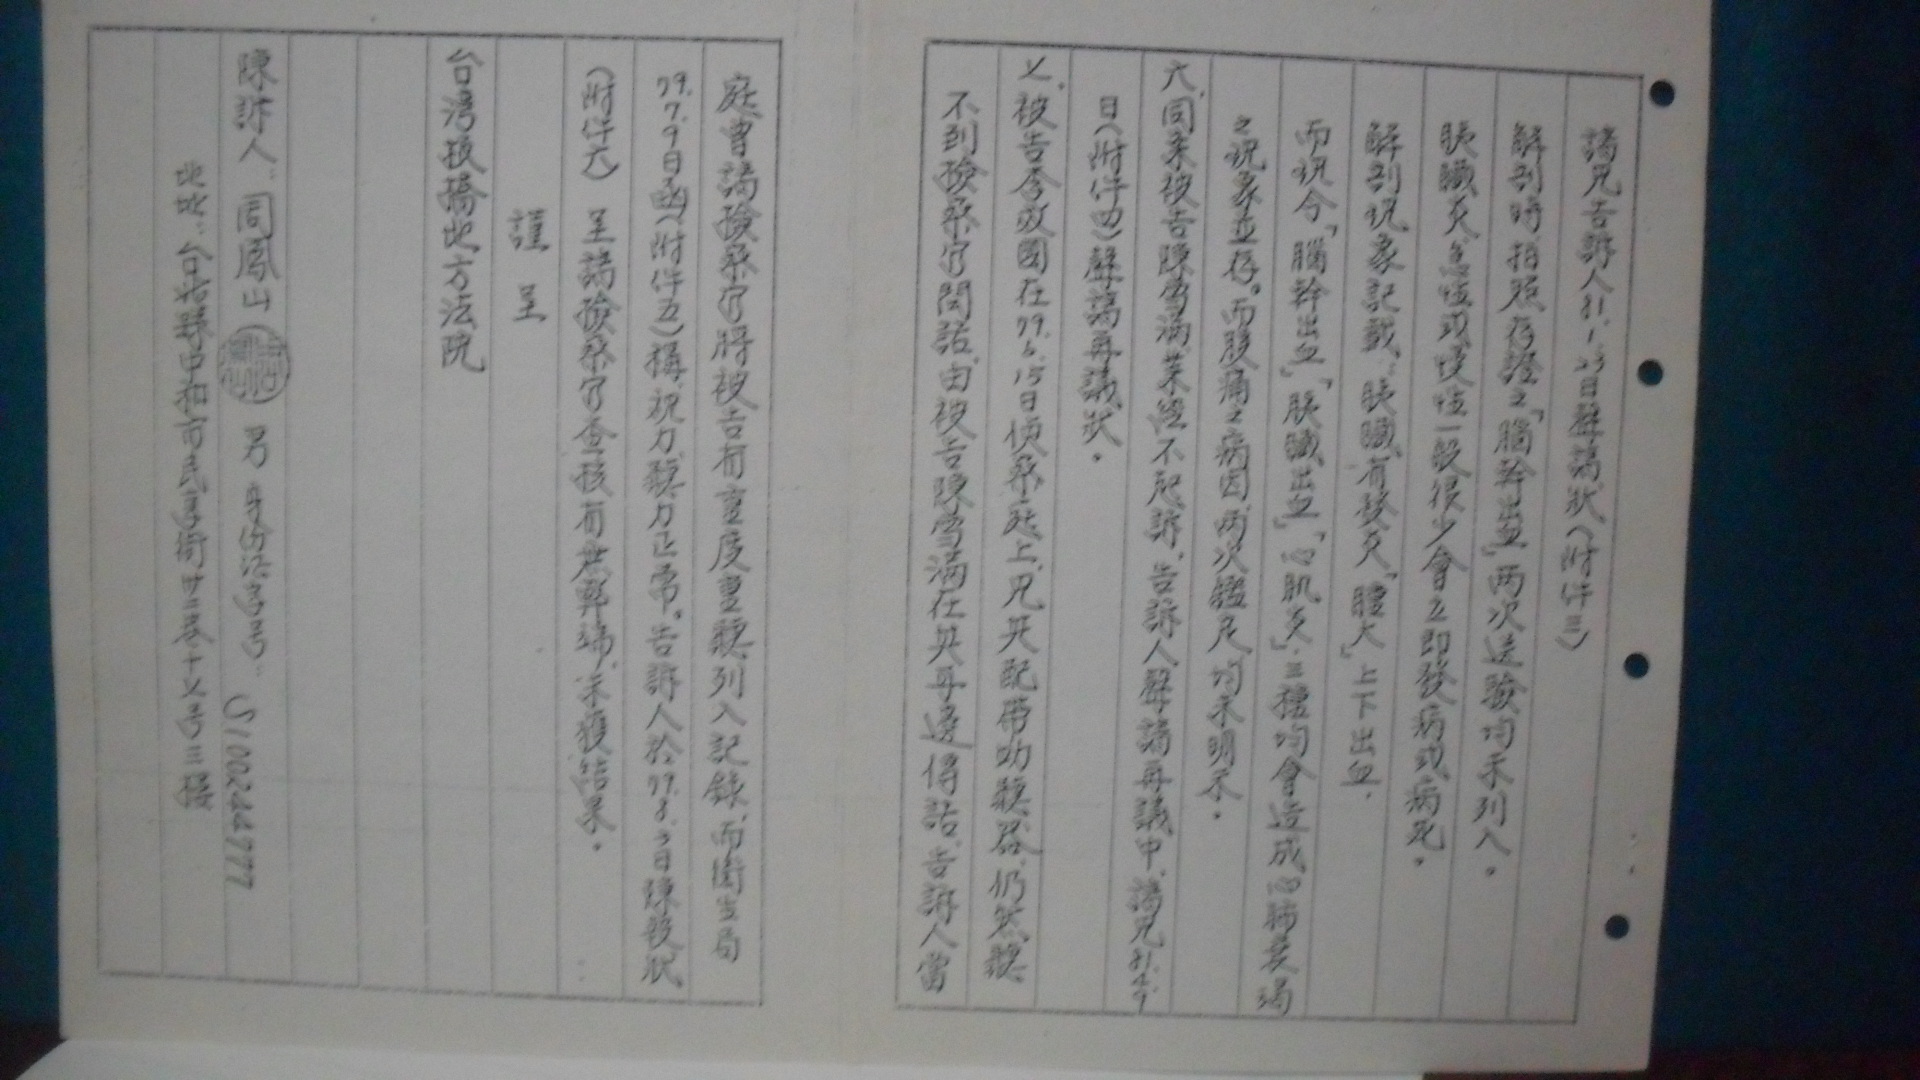 請見告訴人81.1.23日聲請狀(附件三)
解剖時拍照存證之「腦幹出血」兩次送驗均未列入。
胰臟炎急性或慢性一般很少會立即發病或病死。
解剖現象記載:胰臟有發炎「腫大」上下出血.
而現今「腦幹出血」「胰臟出血」「心肌炎」三種均會造成心肺衰竭
之現象並存。而腹痛之病因,兩次鑑定均未明示。
六、同案被告陳雪滿業經不起訴,告訴人聲請再議中,請見81.4.9
日(附件四)聲請再議狀。
七、被告 在79.6.15日偵察庭上,見其配帶助聽器,仍然聽
不到檢察官問話,由被告陳雪滿在其耳邊傳話,告訴人當
庭曾請檢察官將被告有重度重聽列入記錄,而衛生局
79.7.9日函(附件五)稱視力聽力正常。告訴人於79.8. 日陳報狀
(附件六)呈請檢察官查核有無弊端,未獲結果。
謹 呈
台灣板橋地方法院
陳訴人: 同鳳山 男 身份證字號: S100244777
地址:台北縣中和市民享街卅三巷十七号三樓